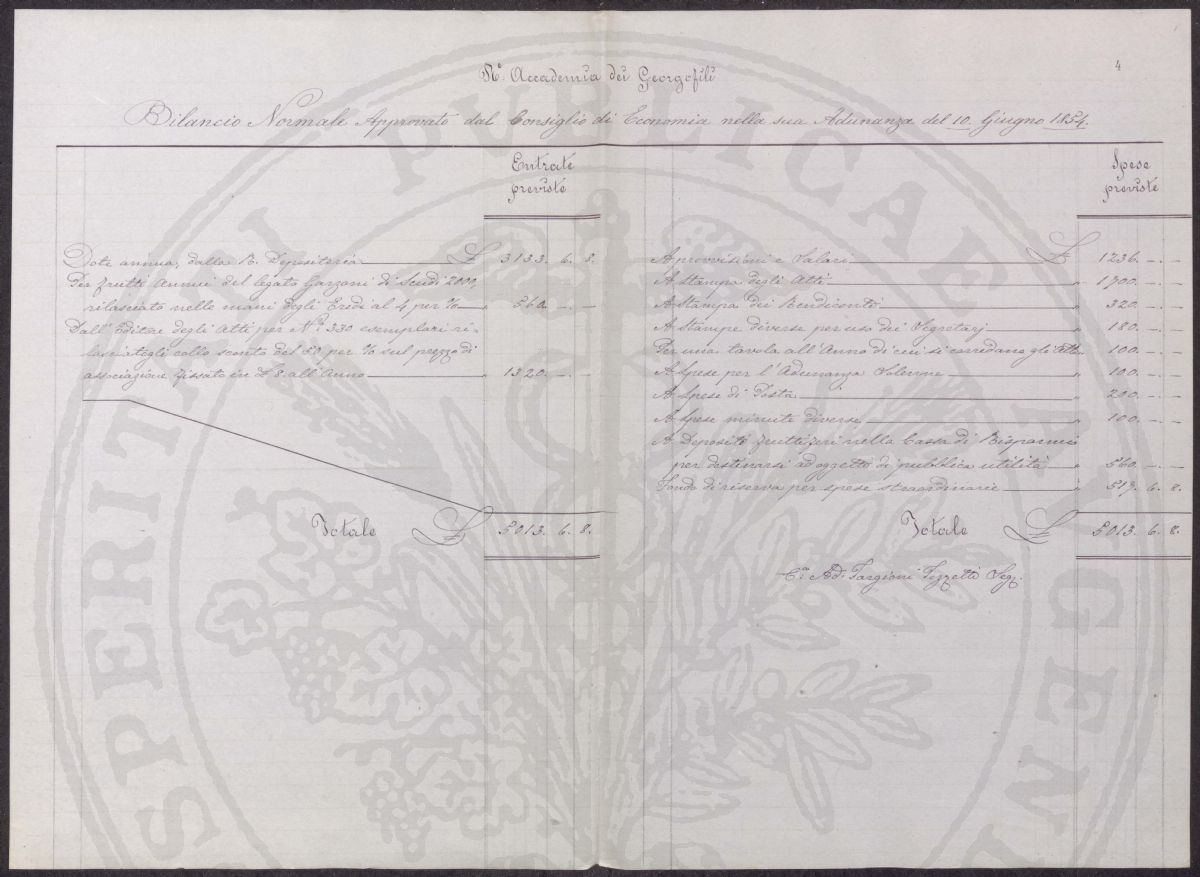 4
Rᵉ Accademia dei Georgofili
Bilancio Normale Approvato dal Consiglio di Economia nella sua Adunanza del 10. Giugno 1854.
Entrate
previste
Dote annua, dalla R. Depositeria £ 3133. 6. 8.
Per frutti Annui del legato Garzoni di Scudi 2000,
rilasciato nelle mani degli Eredi al 4 per % " 560. - -
Dall' Editore degli Atti per Nº 330 esemplari ri-
lasciatogli collo sconto del 50 per % sul prezzo di
associazione fissato in £ 8 all'Anno " 1320. - -
Totale £ 5013. 6. 8.
Spese
previste
A provvisioni e Salari £ 1236. - -
A Stampa degli Atti " 1700. - -
A Stampa dei Rendiconti " 320. - -
A Stampe diverse per uso dei Segretarj " 180. - -
Per una tavola all'Anno di cui si corredano gli Atti " 100. - -
A Spese per l'Adunanza Solenne " 100. - -
A Spese di Posta " 200. - -
A Spese minute diverse " 100. - -
A Deposito fruttifero nella Cassa di Risparmio
per destinarsi ad oggetto di pubblica utilità " 560. - -
Fondo di riserva per spese straordinarie " 517. 6. 8.
Totale £ 5013. 6. 8.
Ad. Targioni Tozzetti Seg.
PROSPERITATI PUBLICAE AUGENDAE